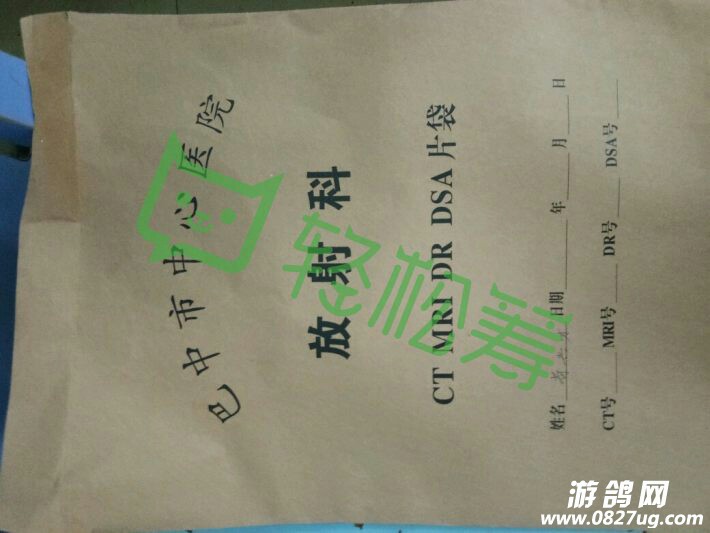 巴中市中心医院
放射科
CT MRI DR DSA 片袋
姓名 日期 年 月 日
CT号 MRI号 DR号 DSA号
轻松筹
游鸽网
www.0827ug.com